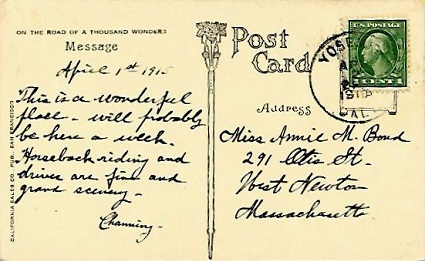 ON THE ROAD OF A THOUSAND WONDERS
Message
April 1st 1915
This is a wonderful
place - will probably
be here a week.
Horseback riding and
drives are fine and
grand scenery -
Channing -
CALIFORNIA SALES CO. PUB. SAN FRANCISCO
Post
Card
Address
Miss Annie M. Bond
291 Otis St.
West Newton
Massachusetts
U.S. POSTAGE
CENT
YOSE
CAL